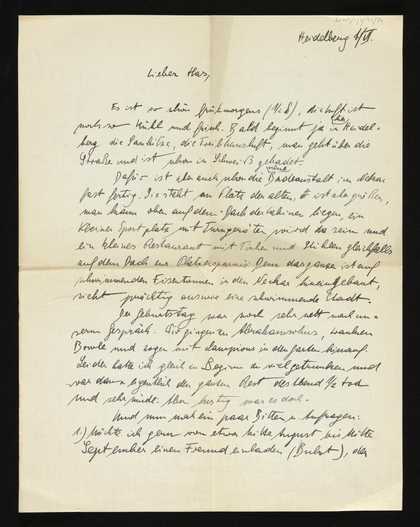 Heidelberg 4/VI.
Lieber Hans,
Es ist so schön frühmorgens (1/4 8), die Luft ist
noch so kühl und frisch. Bald beginnt ja in Heidel-
berg die Backhitze, die Treibhausluft, man geht über die
Straße und ist schon in Schweiß gebadet.
Dafür ist aber auch schon die neue Badeanstalt im Neckar
fast fertig. Sie steht am Platz der alten, ist aber größer,
man kann oben auf dem Dach der Kabinen liegen, ein
kleiner Sportplatz mit Turngeräten wird da sein und
ein kleines Restaurant mit Tischen und Stühlen gleichfalls
auf dem Dach zur Platzersparnis. Denn das ganze ist auf
schwimmenden Eisentonnen in den Neckar hineingebaut,
sieht prächtig aus wie eine schwimmende Stadt.
Der Geburtstag war noch sehr nett nach un-
serm Gespräch. Sie gingen zu Abraham, tranken
Bowle und zogen mit Lampions in den Garten hinauf.
Leider hatte ich gleich zu Beginn zu viel getrunken und
war dann eigentlich den ganzen Rest des Abend 1/2 tod
und sehr müde. Aber lustig war es doch.
Und nun noch ein paar Bitten u. Anfragen:
1.) Möchte ich gern von etwa Mitte August bis Mitte
September einen Freund einladen ( ), der